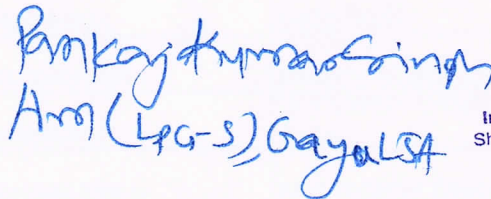 Pankaj Kumar Singh
Am (LPG-S), Gaya LSA